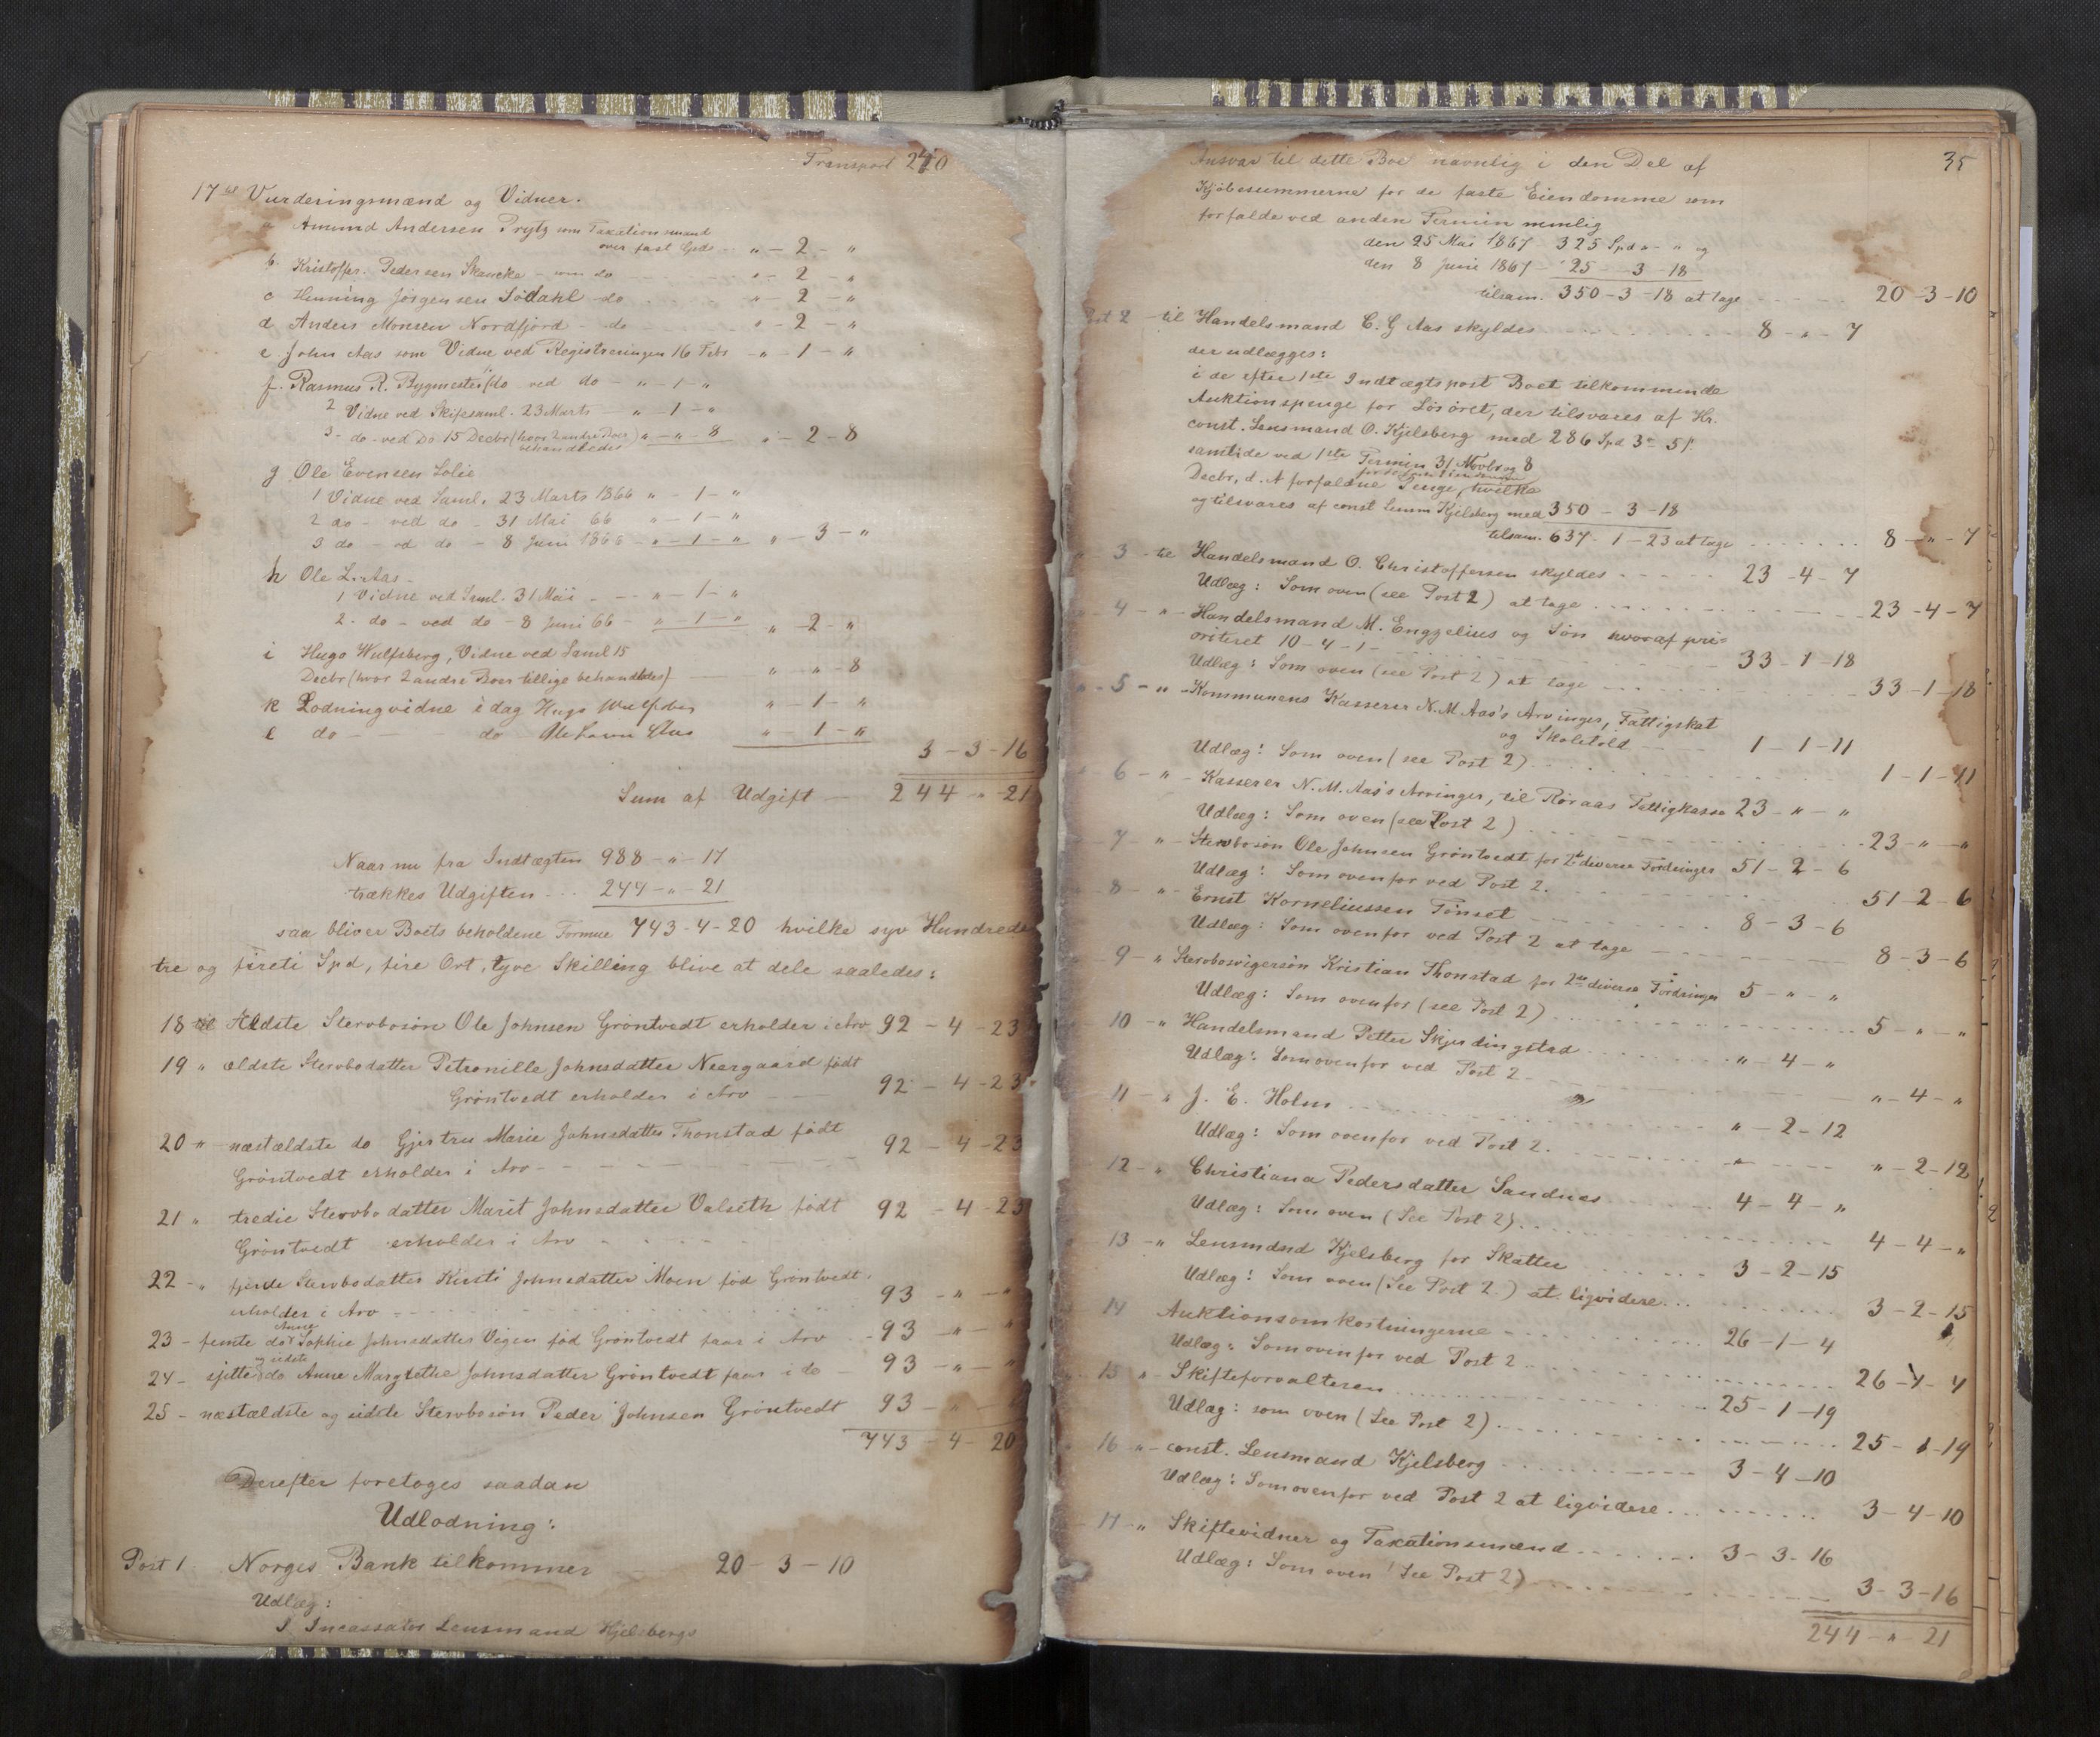 Transport 240
17 til Vurderingsmænd og Vidner.
a Amund Andersen Prytz som Taxationsmand
over fast Gods - „ - 2 - „
b. Kristoffer Pedersen Skancke - som do - „ - 2 - „
c Henning Jörgensen Södahl do „ - 2 - „
d Anders Monsen Nordfjord - do „ - 2 - „
e. John Aas som Vidne ved Registreringen 16 Febr - „ - 1 - „
f. Rasmus R. Bygmester 1/do ved do - „ - 1 - „
2 Vidne ved Skiftesaml. 23 Marts - „ - 1 - „
3 - do - ved Do 15 Decbr (hvor 2 andre Boer „ - „ - 8 „ - 2 - 8
behandledes)
g Ole Evensen Solie
1 Vidne ved Saml. 23 Marts 1866 „ - 1 - „
2 do - ved do - 31 Mai 66 „ - 1 - „
3 do - ved do - 8 Juni 1866 - „ - 1 - „ „ - 3 - „
h Ole L. Aas -
1 Vidne ved Saml. 31 Mai - - „ - 1 - „
2. do - ved do - 8 Juni 66 - „ - 1 - „ „ - 2 - „
i Hugo Wulfsberg, Vidne ved Saml 15
Decbr (hvor 2 andre Boer tillige behandledes) „ - „ - 8
k Lodningvidne i dag Hugo Wulfsberg „ - 1 - „
l do - - - do Ole Aas „ - 1 - „
3 - 3 - 16
Sum af Udgift - 244 - „ - 21
Naar nu fra Indtægten 988 - „ - 17
trækkes Udgiften ... 244 - „ - 21
saa bliver Boets beholdene Formue 743 - 4 - 20 hvilke syv Hundrede
tre og fireti Spd, fire Ort, tyve Skilling blive at dele saaledes:
18 til Ældste Stervbosön Ole Johnsen Gröntvedt erholder i Arv 92 - 4 - 23
19 „ ældste Stervbodatter Petronille Johnsdatter Neergaard födt
Gröntvedt erholder i Arv - - 92 - 4 - 23
20 „ næstældste do Gjertru Marie Johnsdatter Thonstad födt
Gröntvedt erholder i Arv - - - 92 - 4 - 23
21 „ tredie Stervbodatter Marit Johnsdatter Valseth födt
Gröntvedt erholder i Arv - - - 92 - 4 - 23
22 - „ fjerde Stervbodatter Kirsti Johnsdatter Moen föd Gröntvedt
erholder i Arv - - - 93 - „ - „
23 - femte do Anne Sophie Johnsdatter Vigen föd Gröntvedt faar i Arv - 93 - „ - „
24 - sjette og sidste do Anne Margrethe Johnsdatter Gröntvedt faar i do 93 - „ - „
25 - næstældste og sidste Stervbosön Peder Johnsen Gröntvedt 93 - „ - „
743 - 4 - 20
Derefter foretoges saadan
Udlodning:
Post 1. Norges Bank tilkommer 20 - 3 - 10
Udlæg:
I Incassator Lensmand Kjelsbergs
35
Ansvar til dette Boe navnlig i den Del af
Kjöbesummerne for de faste Eiendomme som
forfalde ved anden Termin nemlig
den 25 Mai 1867 325 Spd „ - „ og
den 8 Juni 1867 - 25 - 3 - 18
tilsam. 350 - 3 - 18 at tage - - - 20 - 3 - 10
Post 2 - til Handelsmand C. G Aas skyldes - - - 8 - „ - 7
der udlægges:
i de efter 1ste Indtægtspost Boet tilkommende
Auktionspenge for Lösöret, der tilsvares af Hr.
const. Lensmand O. Kjelsberg med 286 Spd 3 - 5 ſ.
samtide ved 1ste Termin 31 Novbr og 8
Decbr, d. A forfaldne Penge, hvilke
og tilsvares af const Lensm Kjelsberg med 350 - 3 - 18
tilsam. 637 - 1 - 23 at tage ....... 8 - „ - 7
3 - til Handelsmand O. Christoffersen skyldes - - - 23 - 4 - 7
Udlæg: Som oven (see Post 2) at tage ... 23 - 4 - 7
4 - „ - Handelsmand M. Engzelius og Sön hvoraf pri-
oritet 10 - 4 - 1 - - - 33 - 1 - 18
Udlæg: Som oven (see Post 2) at tage - - - 33 - 1 - 18
5 - „ - Kommunens Kasserer N. M Aas's Arvinger, Fattigskat
og Skoletold - - 1 - 1 - 11
Udlæg: Som oven (see Post 2) ... 1 - 1 - 11
6 - „ - Kasserer N. M. Aas's Arvinger, til Röraas Fattigkasse 23 - „ - „
Udlæg: Som oven (see Post 2) ... 23 - „ - „
7 - „ - Stervbosön Ole Johnsen Gröntvedt for 2de diverse Fordringer 51 - 2 - 6
Udlæg: Som ovenfor ved Post 2. ... 51 - 2 - 6
8 - „ - Ernst Korneliussen Tönset - - - 8 - 3 - 6
Udlæg: Som ovenfor ved Post 2 at tage - - - 8 - 3 - 6
9 - „ Stervbosvigersön Kristian Thonstad for 2de diverse Fordringer 5 - „ - „
Udlæg: Som ovenfor (see Post 2) ... 5 - „ - „
10 - „ Handelsmand Petter Skjerdingstad ... „ - 4 - „
Udlæg: Som ovenfor ved Post 2 - ... „ - 4 - „
11 - „ J. E. Holm ... „ - 2 - 12
Udlæg: Som ovenfor ved Post 2. ... „ - 2 - 12
12 - „ Christiana Pedersdatter Sandnes ... 4 - 4 - „
Udlæg: Som oven (See Post 2). ... 4 - 4 - „
13 - „ Lensmand Kjelsberg for Skatter ... 3 - 2 - 15
Udlæg: Som oven (See Post 2.) at ligvidere ... 3 - 2 - 15
14 Auktionsomkostningerne ... 26 - 1 - 4
Udlæg: Som ovenfor ved Post 2 ... 26 - 1 - 4
15 „ - Skifteforvalteren ... 25 - 1 - 19
Udlæg: som oven (See Post 2). ... 25 - 1 - 19
16 „ - const. Lensmand Kjelsberg ... 3 - 4 - 10
Udlæg: Som ovenfor ved Post 2 at ligvidere ... 3 - 4 - 10
17 - „ Skiftevidner og Taxationsmænd ... 3 - 3 - 16
Udlæg: Som oven (See Post 2) ... 3 - 3 - 16
244 - „ - 21